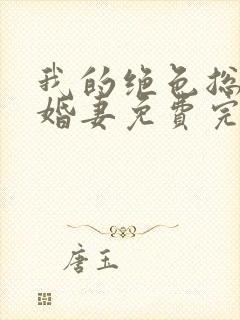 我的绝色总
婚妻免费完
唐玉